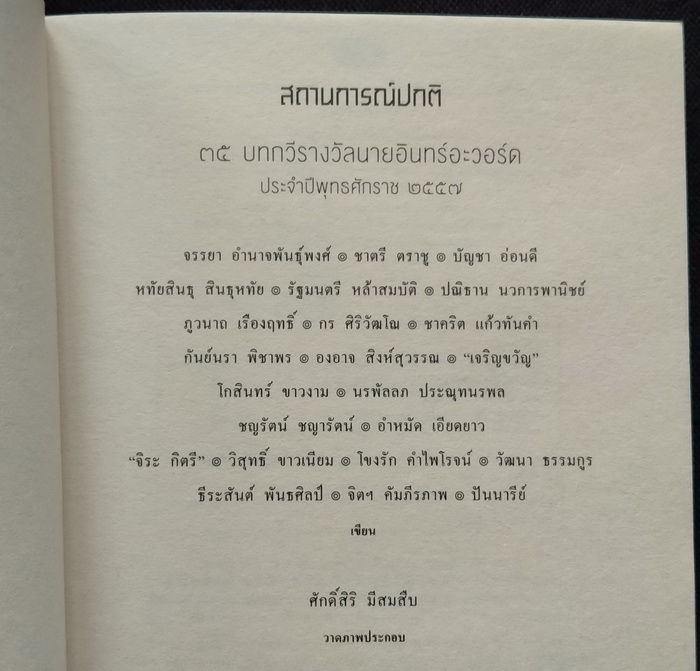 สถานการณ์ปกติ
๓๕ บทกวีรางวัลนายอินทร์อะวอร์ด
ประจำปีพุทธศักราช ๒๕๕๗
จรรยา อำนาจพันธุ์พงศ์ ๏ ชาตรี ตราชู ๏ บัญชา อ่อนดี
หทัยสินธุ สินธุหทัย ๏ รัฐมนตรี หล้าสมบัติ ๏ ปณิธาน นวการพานิชย์
ภูวนาถ เรืองฤทธิ์ ๏ กร ศิริวัฒโณ ๏ ชาคริต แก้วทันคำ
กันย์นรา พิชาพร ๏ องอาจ สิงห์สุวรรณ ๏ “เจริญขวัญ”
โกสินทร์ ขาวงาม ๏ นรพัลลภ ประณุทนรพล
ชญรัตน์ ชญารัตน์ ๏ อำหมัด เอียดยาว
“จิระ กิตรี” ๏ วิสุทธิ์ ขาวเนียม ๏ โขงรัก คำไพโรจน์ ๏ วัฒนา ธรรมกูร
ธีระสันต์ พันธศิลป์ ๏ จิตฯ คัมภีรภาพ ๏ ปันนารีย์
เขียน
ศักดิ์สิริ มีสมสืบ
วาดภาพประกอบ